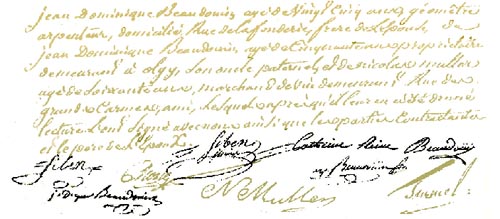 jean Dominique Beaudouin, agé de Vingt Cinq ans géomètre
arpenteur, domicilié, Rue de la fonderie, frère de L'epouse, de
jean Dominique Beaudouin, agé de Cinquante ans propriétaire
demeurant à olgy, son oncle paternel, et de nicolas muller
agé de soixante ans, marchand de vin demeurant Rue des
grands Carmes, ami, Lesquels après qu'il leur en a été donné
lecture L'ont signé avec nous ainsi que les parties Contractantes
et le père de L'epoux
Siben
Siben
Catherine Reine Beaudouin
Beaudouin
N Muller